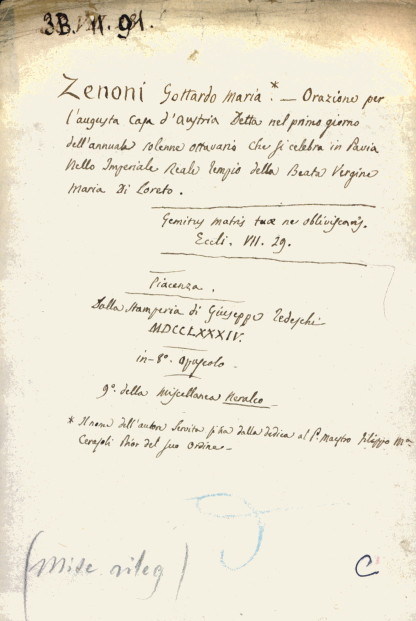 3B. VII. 91.
Zenoni Gottardo Maria.* — Orazione per
l'augusta Casa d'Austria Detta nel primo giorno
dell'annuale solenne ottavario che si celebra in Pavia
Nello Imperiale Reale tempio della Beata Vergine
Maria Di Loreto.
Gemitus matris tuæ ne obliviscaris.
Eccli. VII. 29.
Piacenza.
Dalla Stamperia di Giuseppe Tedeschi
MDCCLXXXIV.
in-8°. opuscolo.
9°. della Miscellanea
* Il nome dell'autore Servita si ha dalla dedica al P. Maestro Filippo Mª
Prior del suo Ordine —
(Misc rileg)
C